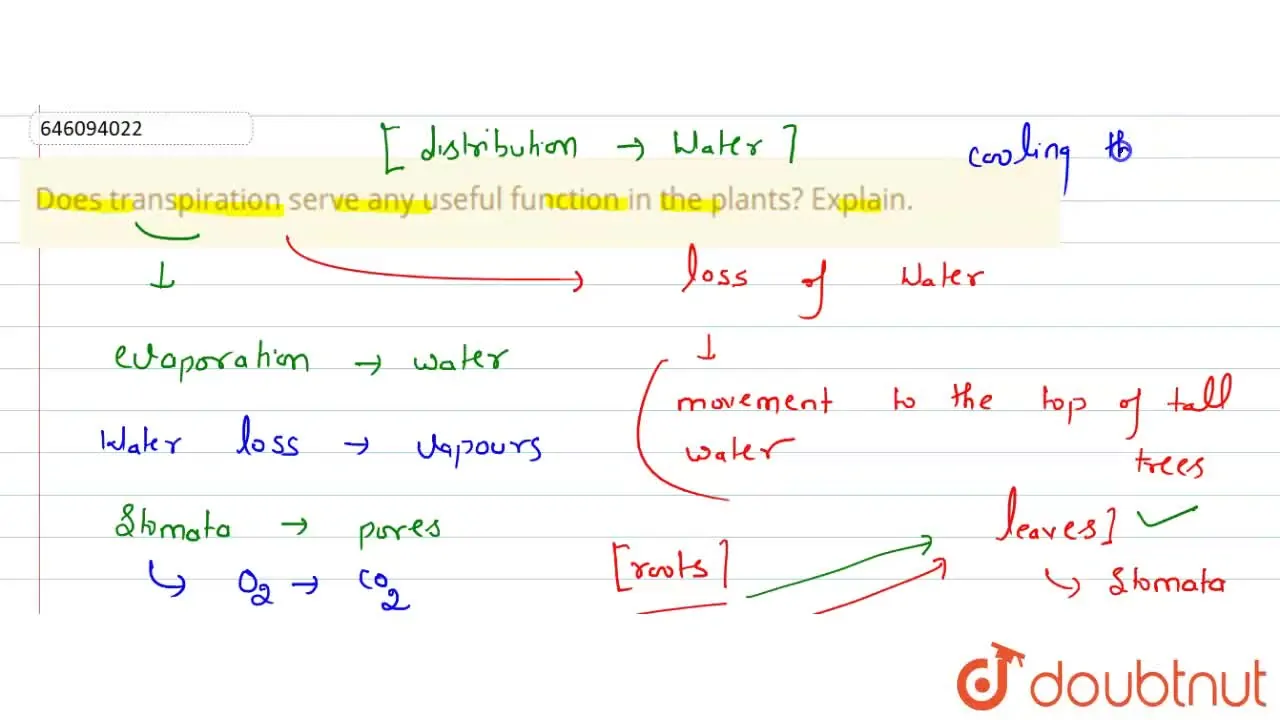 646094022
[ distribution → Water ]
cooling th
Does transpiration serve any useful function in the plants? Explain.
↓
loss of Water
evaporation → water
↓
movement to the top of tall
Water loss → vapours
water
trees
Stomata → pores
leaves] ✓
[roots]
↳ O2 → CO2
↳ Stomata
doubtnut